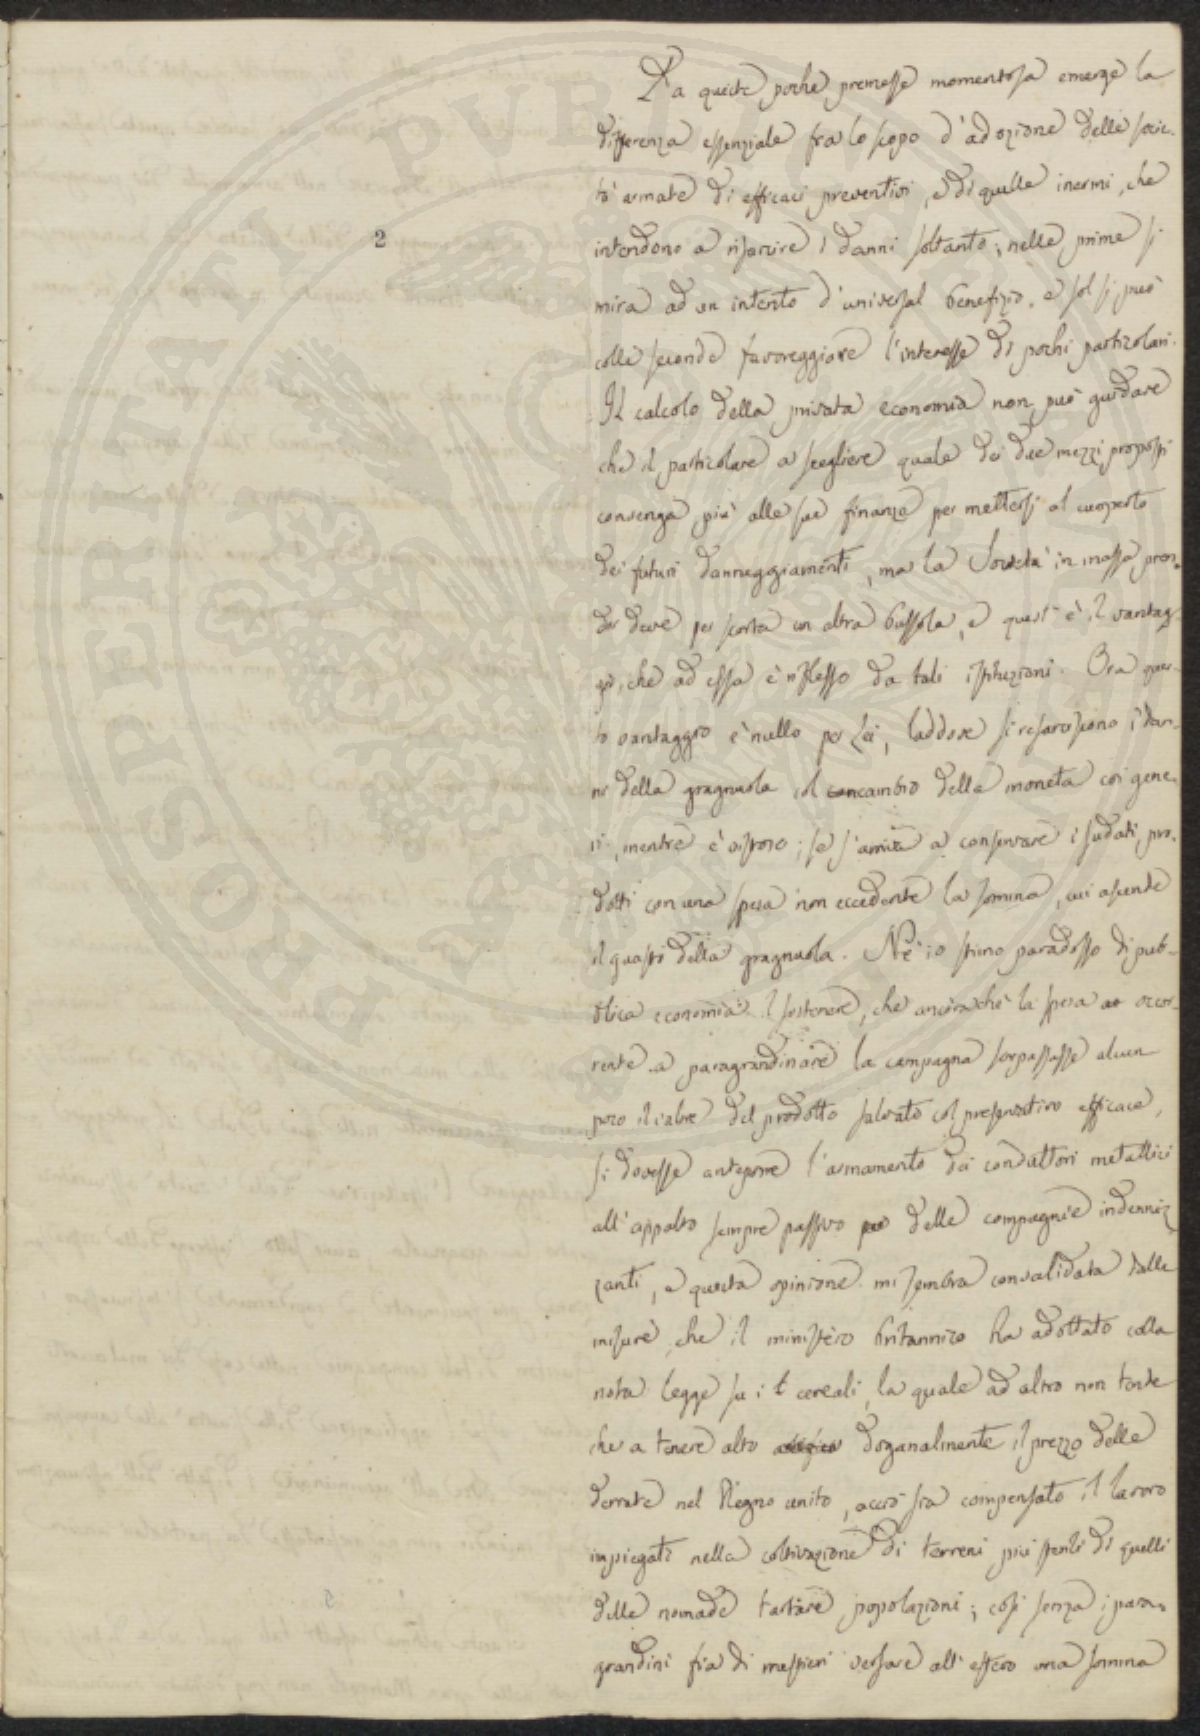 2
Da queste poche premesse momentosa emerge la
differenza essenziale fra lo scopo d'adozione delle socie-
tà armate di efficaci preventivi, e di quelle inermi, che
intendono a risarcire i danni soltanto; nelle prime si
mira ad un intento d'universal benefizio, e sol si può
colle seconde favoreggiare l'interesse di pochi particolari.
Il calcolo della privata economia non può guidare
che il particolare a scegliere quale dei due mezzi proposti
convenga più alle sue finanze per mettersi al coperto
dei futuri danneggiamenti, ma la Società in massa pren-
der deve per scorta un altra bussola, e questi è il vantag-
gio, che ad essa è riflesso da tali istituzioni. Ora ques-
to vantaggio è nullo per lei, laddove si resarciscono i dan-
ni della gragnuola col concambio della moneta coi gene-
ri, mentre è vistoso; se s'arriva a conservare i sudati pro-
dotti con una spesa non eccedente la somma, cui ascende
il guasto della gragnuola. Nè io stimo paradosso di pub-
blica economia il sostenere, che ancora chè la spesa occor-
rente a paragrandinare la campagna sorpassasse alcun
poco il valore del prodotto salvato col preservativo efficace,
si dovesse anteporre l'armamento dei conduttori metallici
all'appalto sempre passivo delle compagnie indenniz-
zanti, e questa opinione mi sembra convalidata dalle
misure, che il ministèro britannico ha adottato colla
nota legge su i cereali, la quale ad altro non tende
che a tenere alto doganalmente il prezzo delle
derrate nel Regno unito, acciò sia compensato il lavoro
impiegato nella coltivazione di terreni più sterili di quelli
delle nomade tartare popolazioni; così senza i para-
grandini fia di mestieri versare all'estero una somma